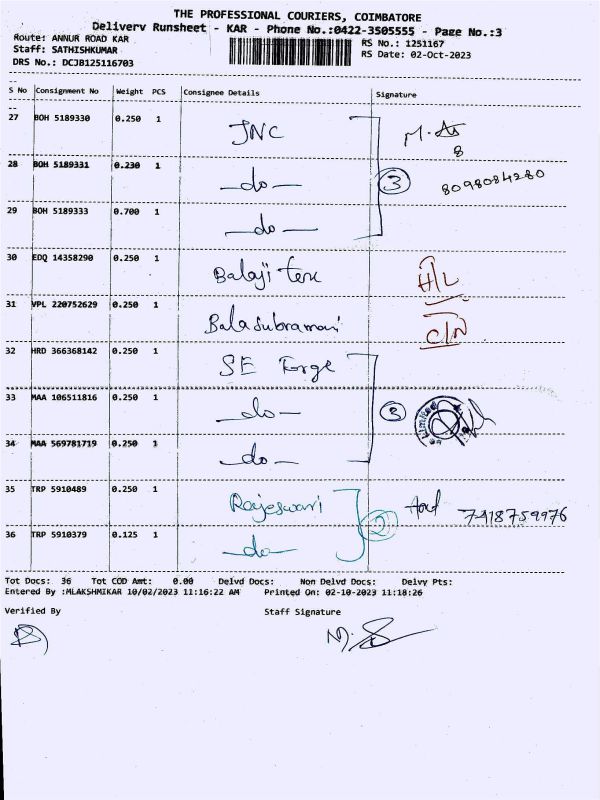 THE PROFESSIONAL COURIERS, COIMBATORE
Delivery Runsheet - KAR - Phone No.:0422-3505555 - Page No.:3
Route: ANNUR ROAD KAR RS No.: 1251167
Staff: SATHISHKUMAR RS Date: 02-Oct-2023
DRS No.: DCJB125116703
S No Consignment No Weight PCS Consignee Details Signature
27 BOH 5189330 0.250 1 JNC M.
8
28 BOH 5189331 0.230 1 -do- 3 8098084280
29 BOH 5189333 0.700 1 -do-
30 EDQ 14358290 0.250 1 Balaji H/L
31 VPL 220752629 0.250 1 Balasubramani C/N
32 HRD 366368142 0.250 1 SE Forge
33 MAA 106511816 0.250 1 -do- 3 Limited
34 MAA 569781719 0.250 1 -do-
35 TRP 5910489 0.250 1 Rajeswari 7418759976
36 TRP 5910379 0.125 1 -do- 2
Tot Docs: 36 Tot COD Amt: 0.00 Delvd Docs: Non Delvd Docs: Delvy Pts:
Entered By :MLAKSHMIKAR 10/02/2023 11:16:22 AM Printed On: 02-10-2023 11:18:26
Verified By Staff Signature